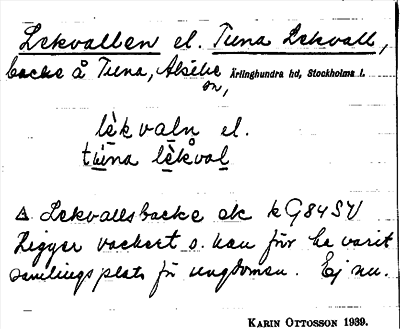 Lekvallen el. Tuna Lekvall,
backe å Tuna, Alsike Ärlinghundra hd, Stockholms l.
sn,
lèkvaln el.
tùna lèkvål
Lekvallsbacke ek kG84SV
Ligger vackert o. kan för ha varit
samlingsplats för ungdomen. Ej nu.
KARIN OTTOSSON 1939.